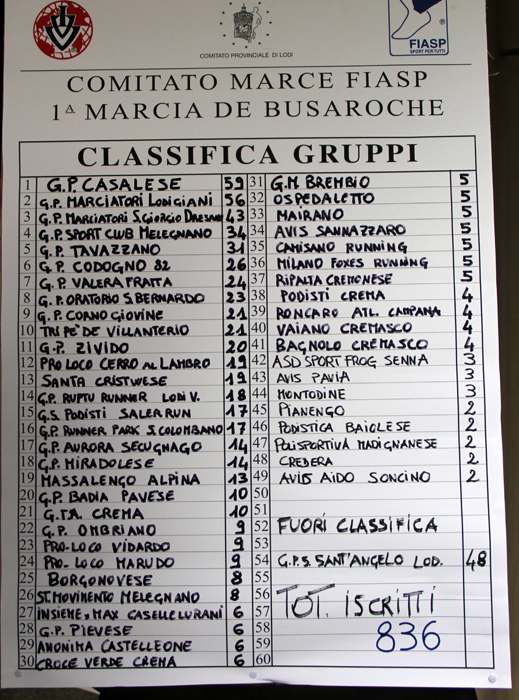 IVV
COMITATO PROVINCIALE DI LODI
FIASP
SPORT PER TUTTI
COMITATO MARCE FIASP
1ª MARCIA DE BUSAROCHE
CLASSIFICA GRUPPI
1 G.P. CASALESE 59
2 G.P. MARCIATORI LODIGIANI 56
3 G.P. MARCIATORI S.GIORGIO DRESANO 43
4 G.P. SPORT CLUB MELEGNANO 34
5 G.P. TAVAZZANO 31
6 G.P. CODOGNO 82 26
7 G.P. VALERA FRATTA 24
8 G.P. ORATORIO S.BERNARDO 23
9 G.P. CORNO GIOVINE 21
10 TRI PE' DE VILLANTERIO 21
11 G.P. ZIVIDO 20
12 PRO LOCO CERRO AL LAMBRO 19
13 SANTA CRISTINESE 19
14 G.P. RUPTU RUNNER LODI V. 18
15 G.S. PODISTI SALERRUN 17
16 G.P. RUNNER PARK S.COLOMBANO 17
17 G.P. AURORA SECUGNAGO 14
18 G.P. MIRADOLESE 14
19 MASSALENGO ALPINA 13
20 G.P. BADIA PAVESE 10
21 G.TA. CREMA 10
22 G.P. OMBRIANO 9
23 PRO-LOCO VIDARDO 9
24 PRO-LOCO MARUDO 9
25 BORGONOVESE 8
26 ST.MOVIMENTO MELEGNANO 8
27 INSIEME X MAX CASELLE LURANI 6
28 G.P. PIEVESE 6
29 ANONIMA CASTELLEONE 6
30 CROCE VERDE CREMA 6
31 G.M. BREMBIO 5
32 OSPEDALETTO 5
33 MAIRANO 5
34 AVIS SANNAZZARO 5
35 CAMISANO RUNNING 5
36 MILANO FOXES RUNNING 5
37 RIPALTA CREMONESE 5
38 PODISTI CREMA 4
39 RONCARO ATL. CAMPANA 4
40 VAIANO CREMASCO 4
41 BAGNOLO CREMASCO 4
42 ASD SPORT FROG SENNA 3
43 AVIS PAVIA 3
44 MONTODINE 3
45 PIANENGO 2
46 PODISTICA BAIOLESE 2
47 POLISPORTIVA MADIGNANESE 2
48 CREDERA 2
49 AVIS AIDO SONCINO 2
50
51
52 FUORI CLASSIFICA
53
54 G.P.S. SANT'ANGELO LOD. 48
55
56 TOT. ISCRITTI
57
58 836
59
60